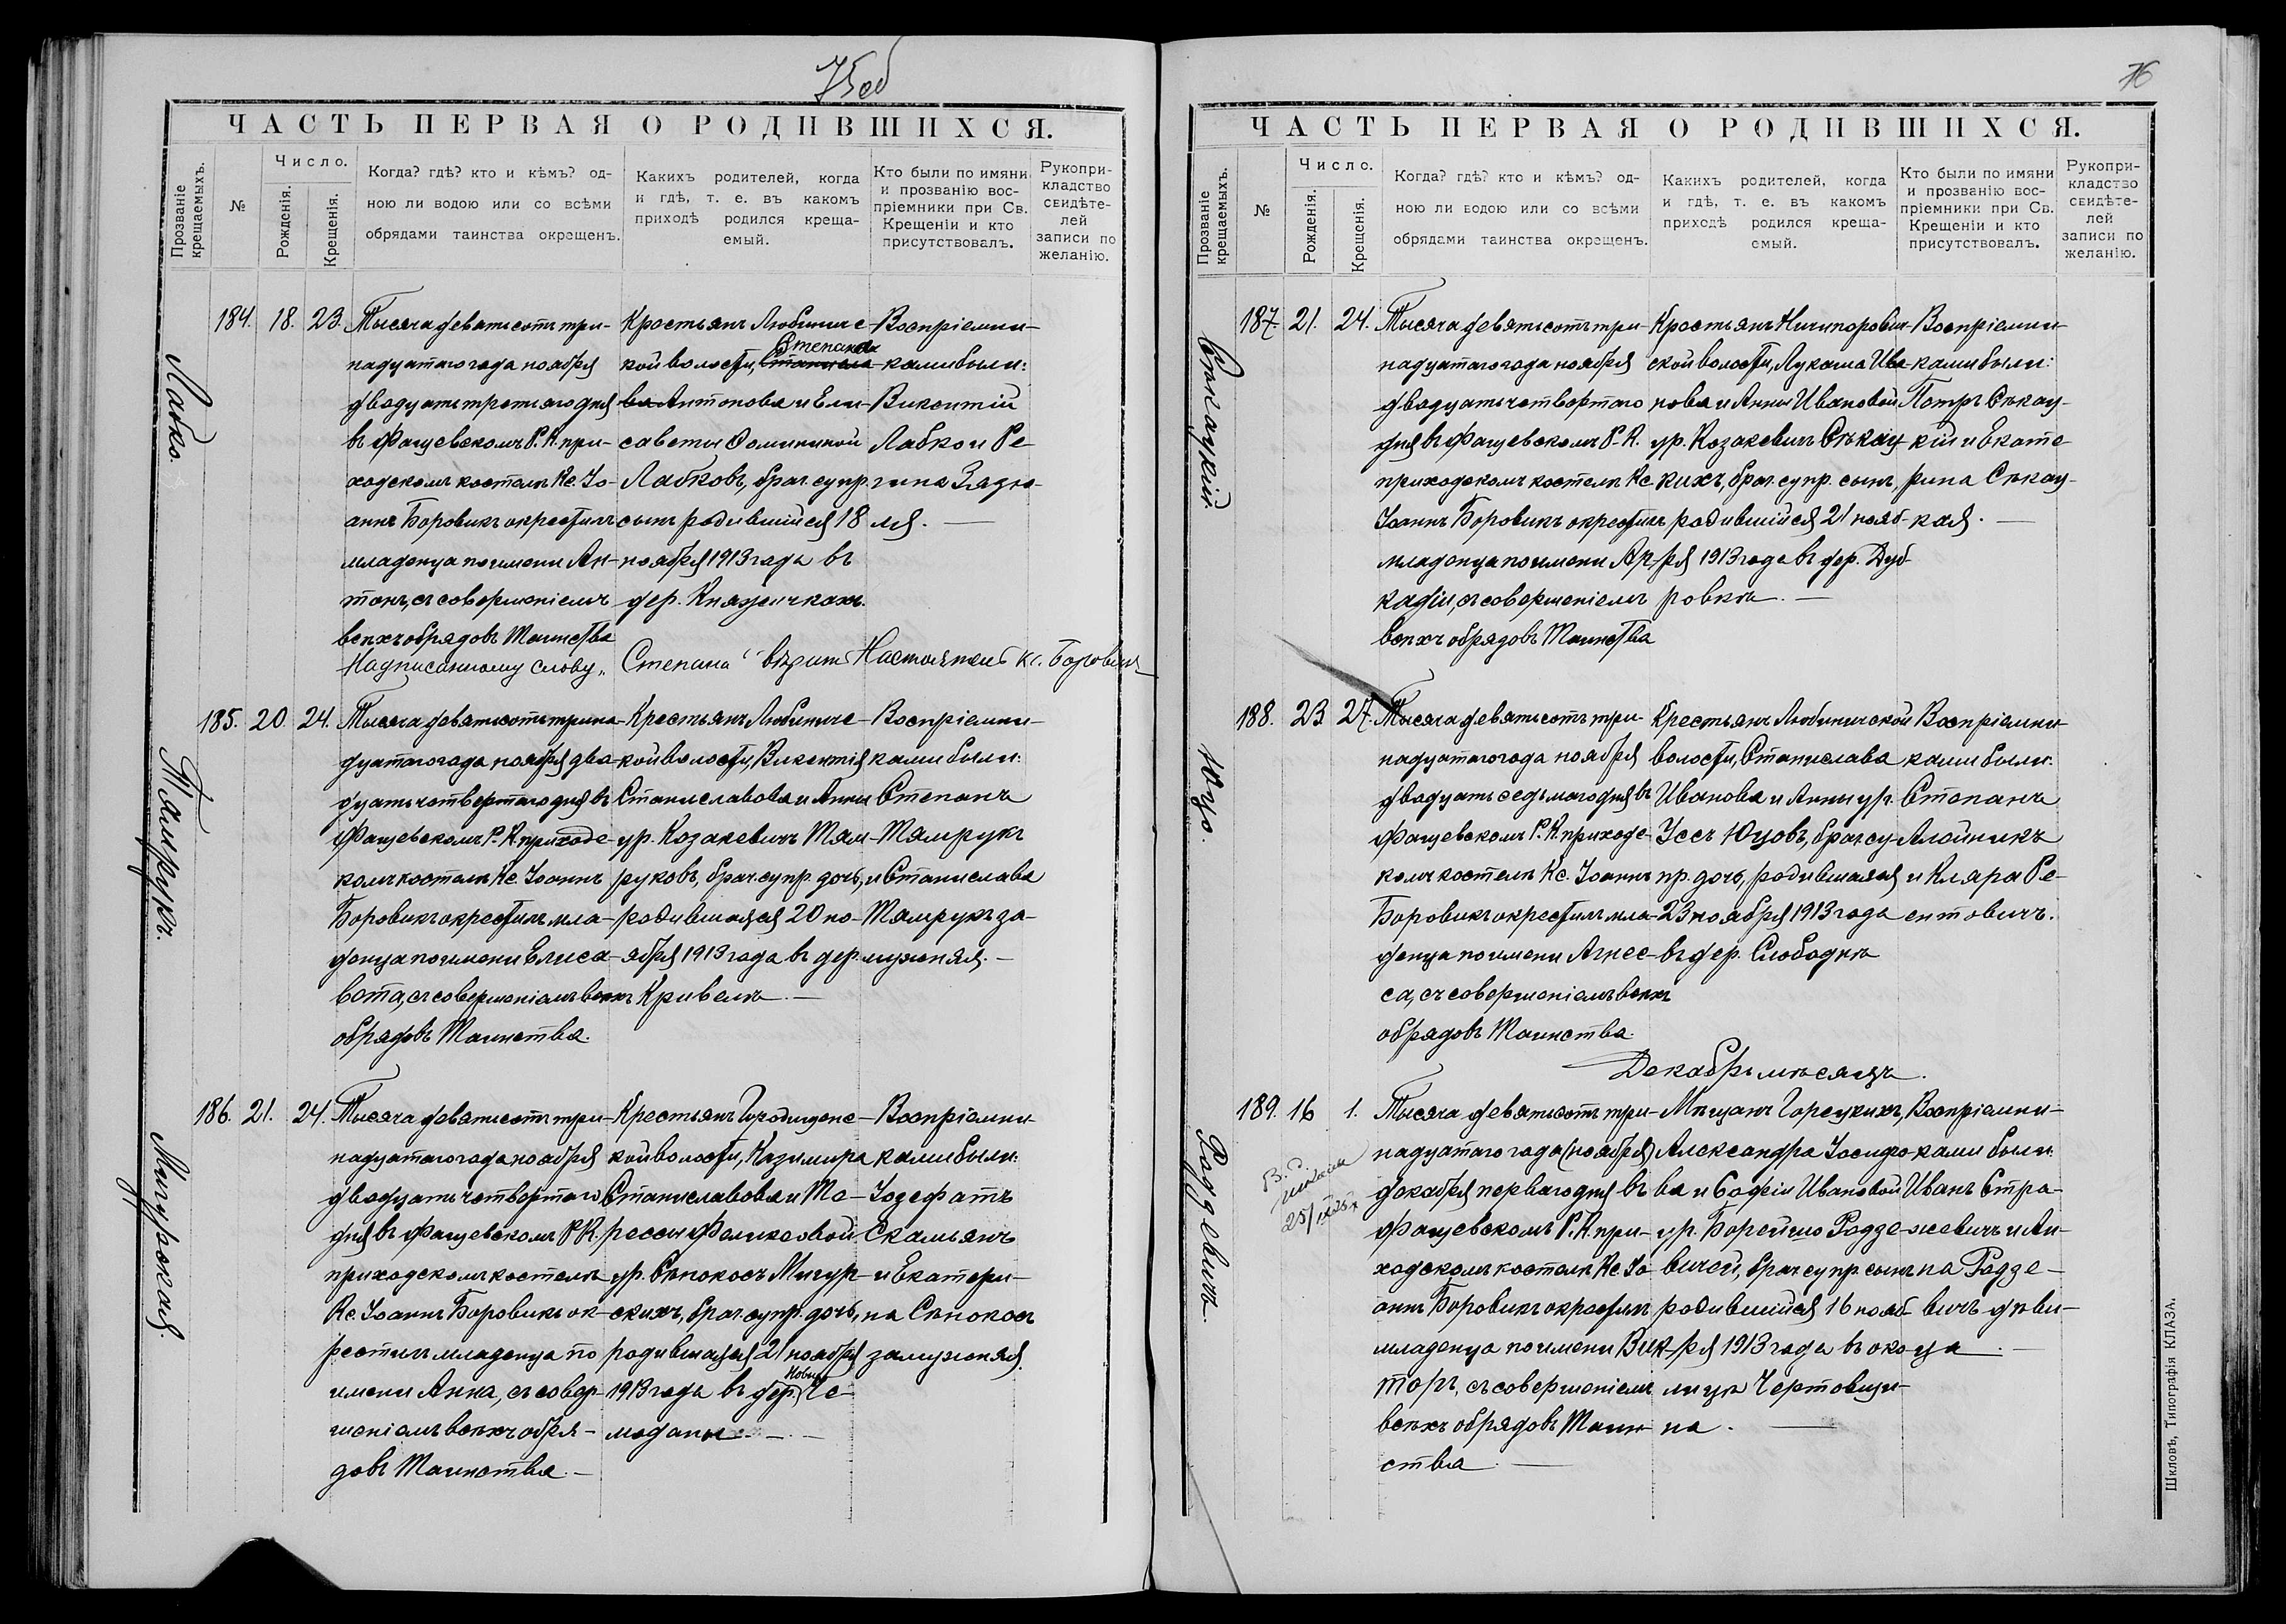 75об
ЧАСТЬ ПЕРВАЯ О РОДИВШИХСЯ.
Прозваніе крещаемыхъ.
№
Число.
Рожденія.
Крещенія.
Когда? гдѣ? кто и кѣмъ? од-
ною ли водою или со всѣми
обрядами таинства окрещенъ.
Какихъ родителей, когда
и гдѣ, т. е. въ какомъ
приходѣ родился креща-
емый.
Кто были по имяни
и прозванію вос-
пріемники при Св.
Крещеніи и кто
присутствовалъ.
Рукопри-
кладство
свидѣте-
лей
записи по
желанію.
Лабко.
184. 18. 23.
Тысяча девятьсотъ три-
надцатаго года ноября
двадцать третьяго дня
въ Фащевскомъ Р. К. при-
ходскомъ костелѣ Кс. Іо-
аннъ Боровикъ окрестилъ
младенца по имени Ан-
тонъ, съ совершеніемъ
всѣхъ обрядовъ Таинства
Крестьянъ Любиничс-
кой волости, Степана
Антонова и Ели-
саветы Доминиковой
Лабковъ, брач. супр.
сынъ родившийся 18
ноября 1913 года въ
дер. Княжичкахъ.
Воспріемни-
ками были:
Викентій
Лабко и Ре-
гина Зязю-
ля.
Надписанному слову „Степана“ вѣрить Настоятель кс. Боровикъ
Тамрукъ.
185. 20. 24.
Тысяча девятьсотъ трина-
дцатаго года ноября два-
дцать четвертаго дня въ
Фащевскомъ Р. К. приходс-
комъ костелѣ Кс. Іоаннъ
Боровикъ окрестилъ мла-
денца по имени Елиса-
вета, съ совершеніемъ всѣхъ
обрядовъ Таинства.
Крестьянъ Любиничс-
кой волости, Викентія
Станиславова и Анны
ур. Козакевичъ Там-
руковъ, брач. супр. дочь,
родившаяся 20 но-
ября 1913 года въ дер.
Кривелѣ.
Воспріемни-
ками были:
Степанъ
Тамрукъ
и Станислава
Тамрукъ за-
мужняя.
Мигурская.
186. 21. 24.
Тысяча девятьсотъ три-
надцатаго года ноября
двадцать четвертаго
дня въ Фащевскомъ Р. К.
приходскомъ костелѣ
Кс. Іоаннъ Боровикъ ок-
рестилъ младенца по
имени Анна, съ совер-
шеніемъ всѣхъ обря-
довъ Таинства.
Крестьянъ Городищенс-
кой волости, Казимира
Станиславова и Те-
рессы Феликсовой
ур. Сѣнокосъ Мигур-
скихъ, брач. супр. дочь,
родившаяся 21 ноября
1913 года въ дер. Новые Че-
моданы.
Воспріемни-
ками были:
Іозефатъ
Скамьянъ
и Екатери-
на Сѣнокосъ
замужняя.
76
ЧАСТЬ ПЕРВАЯ О РОДИВШИХСЯ.
Прозваніе крещаемыхъ.
№
Число.
Рожденія.
Крещенія.
Когда? гдѣ? кто и кѣмъ? од-
ною ли водою или со всѣми
обрядами таинства окрещенъ.
Какихъ родителей, когда
и гдѣ, т. е. въ какомъ
приходѣ родился креща-
емый.
Кто были по имяни
и прозванію вос-
пріемники при Св.
Крещеніи и кто
присутствовалъ.
Рукопри-
кладство
свидѣте-
лей
записи по
желанію.
Сѣкацкій.
187. 21. 24.
Тысяча девятьсотъ три-
надцатаго года ноября
двадцать четвертаго
дня въ Фащевскомъ Р. К.
приходскомъ костелѣ Кс.
Іоаннъ Боровикъ окрестилъ
младенца по имени Ар-
кадій, съ совершеніемъ
всѣхъ обрядовъ Таинства
Крестьянъ Ничипорович-
ской волости, Лукаша Ива-
нова и Анны Ивановой
ур. Козакевичъ Сѣкац-
кихъ, брач. супр. сынъ,
родившийся 21 нояб-
ря 1913 года въ дер. Дуб-
ровкѣ.
Воспріемни-
ками были:
Петръ Сѣкац-
кій и Екате-
рина Сѣкац-
кая.
Юцо.
188. 23 27.
Тысяча девятьсотъ три-
надцатаго года ноября
двадцать седьмаго дня въ
Фащевскомъ Р. К. приходс-
комъ костелѣ Кс. Іоаннъ
Боровикъ окрестилъ мла-
денца по имени Агнес-
са, съ совершеніемъ всѣхъ
обрядовъ Таинства.
Крестьянъ Любиничской
волости, Станислава
Иванова и Анны ур.
Усъ Юцовъ, брач. су-
пр. дочь, родившаяся
23 ноября 1913 года
въ дер. Слободкѣ
Воспріемни-
ками были:
Степанъ
Алойникъ
и Клара Ре-
ентовичъ.
Декабрь мѣсяцъ.
Радзевичъ.
189. 16 1.
Тысяча девятьсотъ три-
надцатаго года (ноября)
декабря перваго дня въ
Фащевскомъ Р. К. при-
ходскомъ костелѣ Кс. Іо-
аннъ Боровикъ окрестилъ
младенца по имени Вик-
торъ, съ совершеніемъ
всѣхъ обрядовъ Таин-
ства
Мѣщанъ Горецкихъ,
Александра Іосифо-
ва и Софіи Ивановой
ур. Борейшо Радзе-
вичей, брач. супр. сынъ
родившийся 16 нояб-
ря 1913 года въ око-
лицѣ Чертовщи-
на.
Воспріемни-
ками были:
Иванъ Стра-
жевичъ и Ан-
на Радзе-
вичъ дѣви-
ца.
Шкловъ, Типографія КЛАЗА.